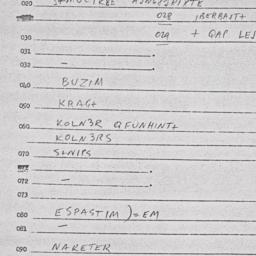 020
028 IBERBAIT+
030 029 + GAP LES
031 .
032 — .
040 BUZIM
050 KRAG+
060 KOLN3R QFUNHINT+
KOLN3RS
070 S+NIPS
071 .
072 — .
073
080 ESPASTIM )=EM
081 —
090 NARETER